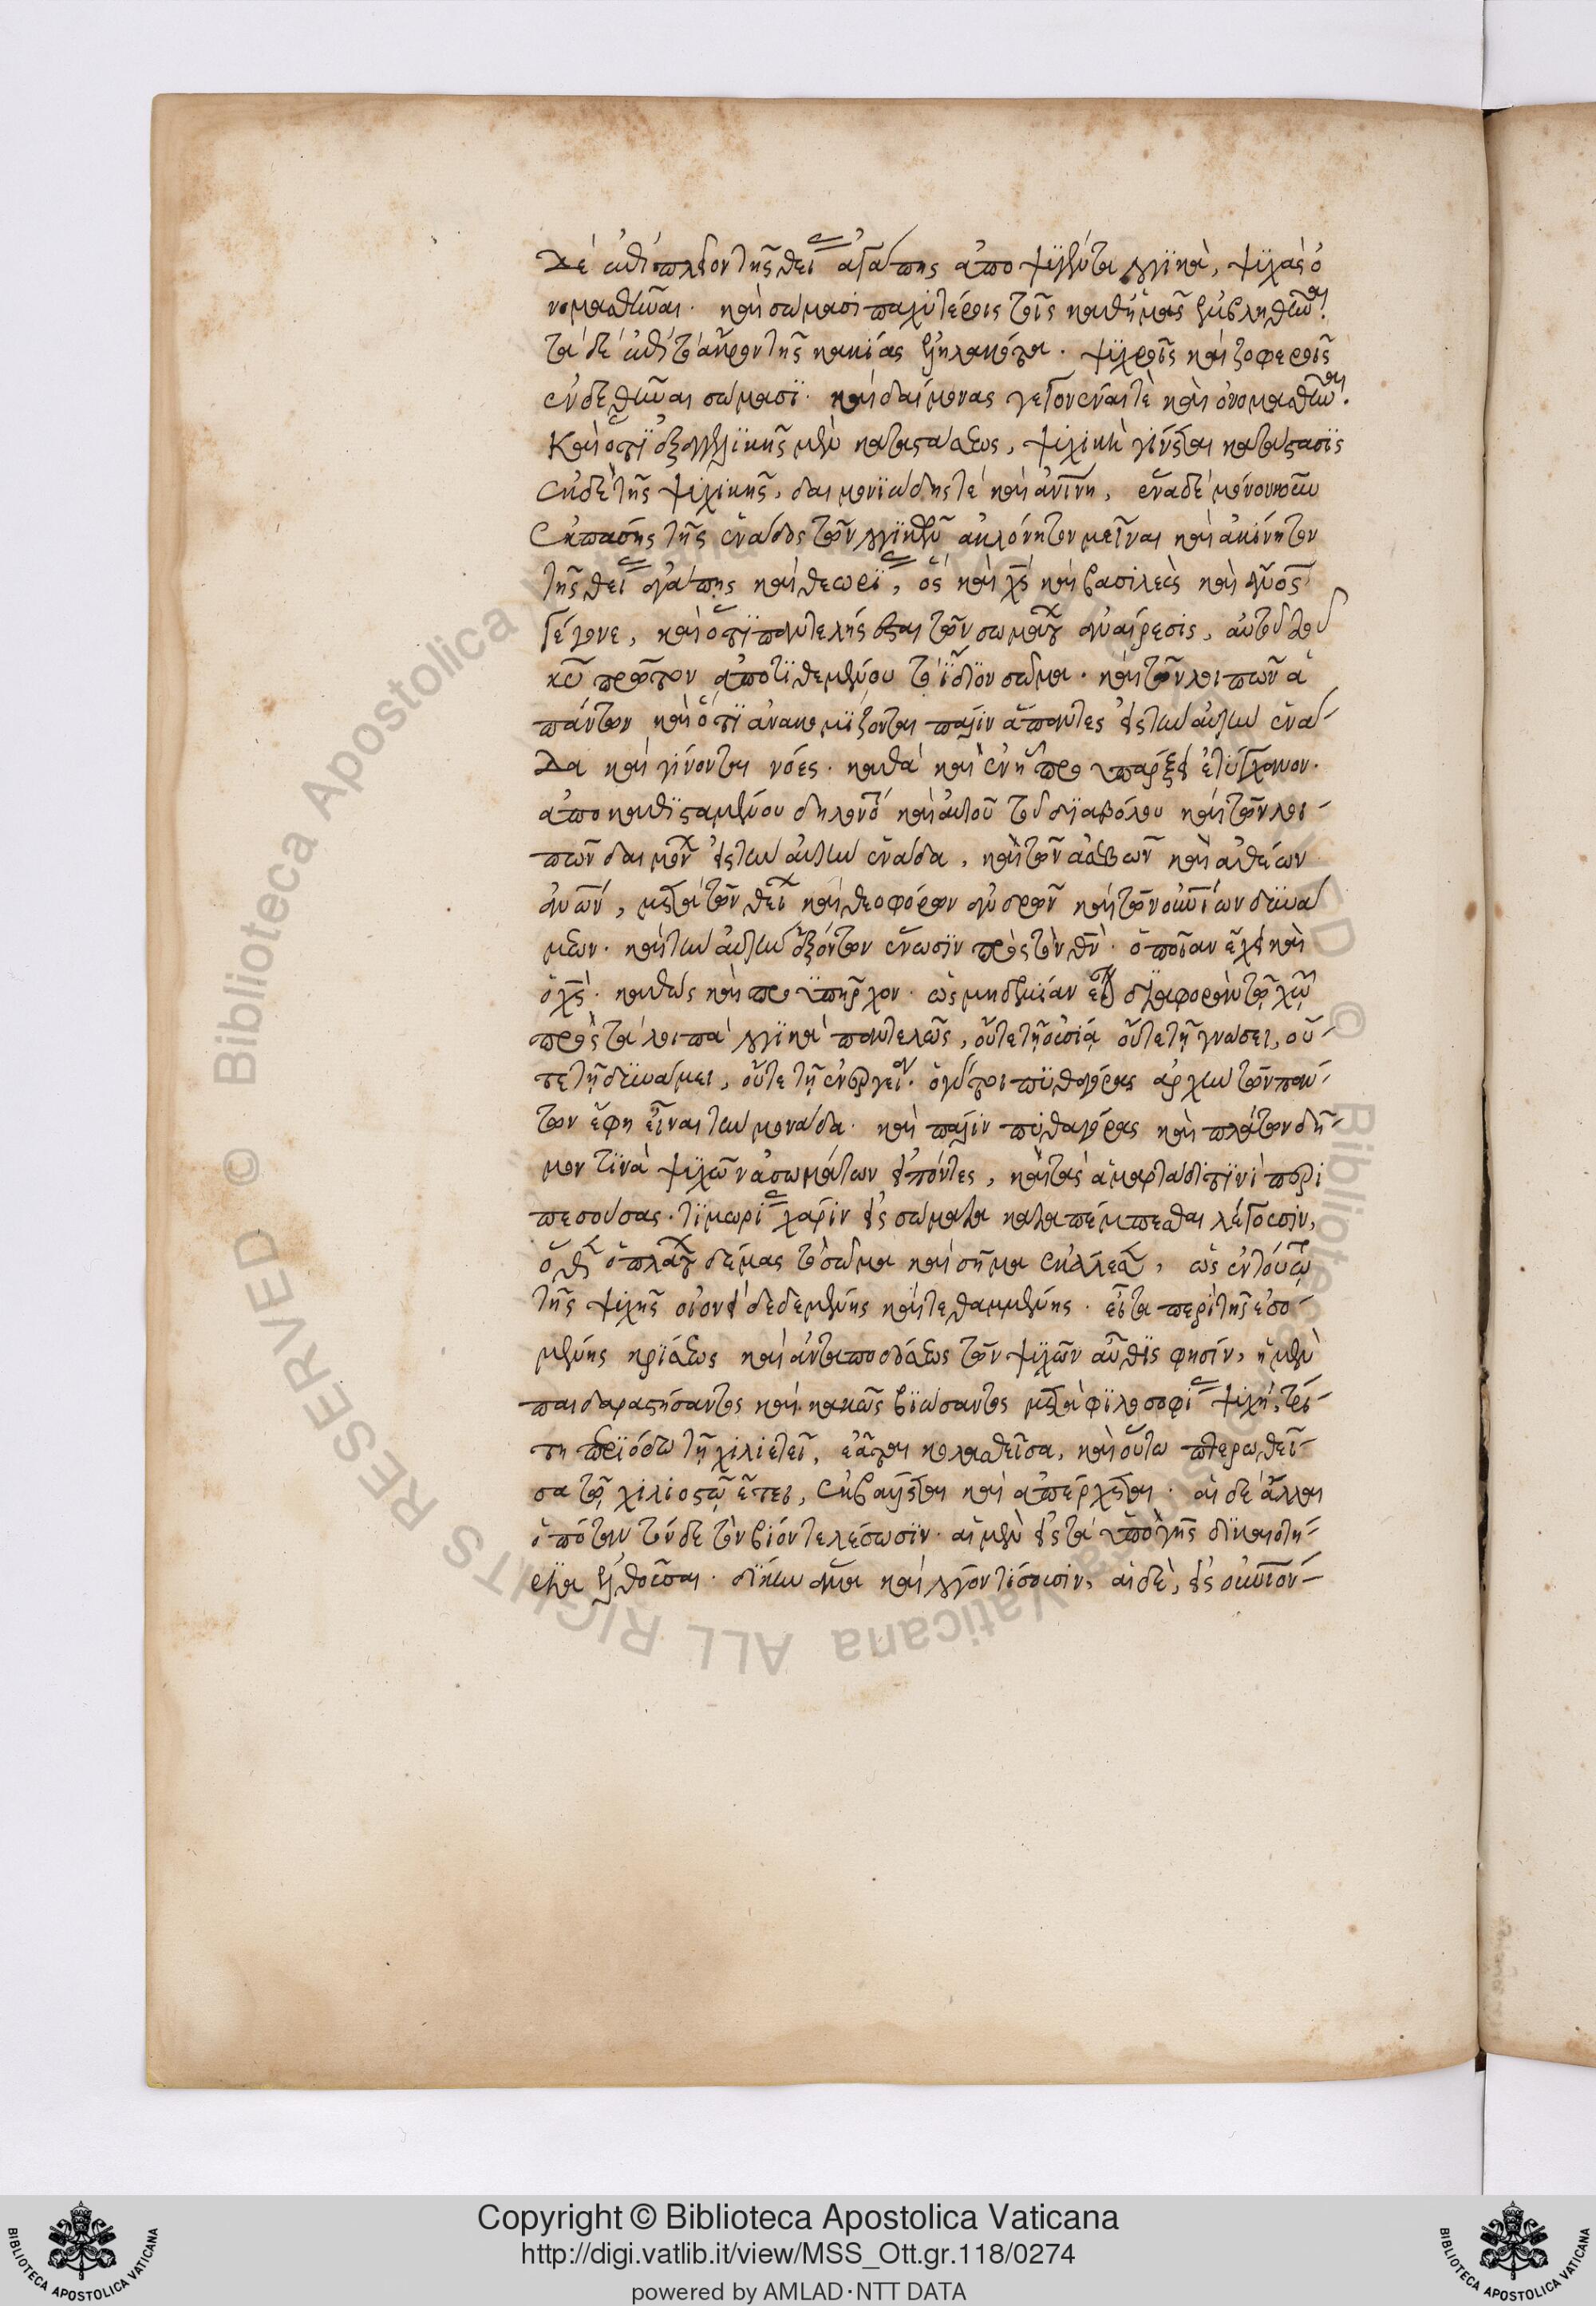 δὲ ἐπὶ πλεῖον τῆς θείας ἀγάπης ἀποψυγέντα λογικὰ, ψυχὰς ὀ
νομασθῆναι. καὶ σώμασι παχυτέροις τοῖς καθ' ἡμᾶς ἐμβληθῆναι.
τὰ δὲ ἐπὶ τὸ ἄκρον τῆς κακίας ἐληλακότα. ψυχροῖς καὶ ζοφεροῖς
ἐνδεθῆναι σώμασι. καὶ δαίμονας γεγονέναι τὲ καὶ ὀνομασθῆναι.
Καὶ ὅτι ἐξ ἀγγελικῆς μὲν καταστάσεως, ψυχικὴ γίνεται κατάστασις
ἐκ δὲ τῆς ψυχικῆς, δαιμονιώδης τὲ καὶ ἀνίνη, ἕνα δὲ μόνον νοῦν
ἐκ πάσης τῆς ἑνάδος τῶν λογικῶν ἀκλόνητον μεῖναι καὶ ἀκίνητον
τῆς θείας ἀγάπης καὶ θεωρίας, ὃς καὶ χς καὶ βασιλεὺς καὶ ἄνος
γέγονε, καὶ ὅτι παντελής ἐσται τῶν σωμάτων ἀναίρεσις, αὐτοῦ τοῦ
κυ πρῶτον ἀποτιθεμένου τὸ ἴδιον σῶμα. καὶ τῶν λοιπῶν ἁ
πάντων καὶ ὅτι ἀνακομίζονται πάλιν ἅπαντες εἰς τὴν αὐτὴν ἑνά-
δα καὶ γίνονται νόες. καθὰ καὶ ἐν τῇ προϋπάρξει ἐτύγχανον.
ἀποκαθισταμένου δηλονότι καὶ αὐτοῦ τοῦ διαβόλου καὶ τῶν λοι-
πῶν δαιμόνων εἰς τὴν αὐτὴν ἑνάδα, καὶ τῶν ἀσεβῶν καὶ ἀθέων
ἀνων, μετὰ τῶν θείων καὶ θεοφόρων ἀνδρῶν καὶ τῶν οὐνίων δυνά
μεων. καὶ τὴν αὐτὴν ἑξόντων ἕνωσιν πρὸς τὸν θν. ὁποίαν ἔχει καὶ
ὁ χς. καθὼς καὶ προϋπῆρχον. ὡς μηδεμίαν εἶναι διαφορὰν τῷ χω
πρὸς τὰ λοιπὰ λογικὰ παντελῶς, οὔτε τῇ οὐσία οὔτε τῇ γνώσει, οὔ-
τε τῇ δυνάμει, οὔτε τῇ ἐνεργεία. ὁ γάρ τοι πυθαγόρας ἀρχὴν τῶν πάν-
των ἔφη εἶναι τὴν μονάδα. καὶ πάλιν πυθαγόρας καὶ πλάτων δῆ-
μον τινὰ ψυχῶν ἀσωμάτων εἰπόντες, καὶ τὰς ἁμαρτάδι τινὶ περι
πεσούσας. τιμωρίας χάριν εἰς σώματα καταπέμπεσθαι λέγουσιν,
ὅθεν ὁ πλάτων δέμας τὸ σῶμα καὶ σῆμα ἐκάλεσεν, ὡς ἐν τούτω
τῆς ψυχῆς οἱονεὶ δεδεμένης καὶ τεθαμμένης. εἶτα περὶ τῆς ἐσο-
μένης κρίσεως καὶ ἀνταποδόσεως τῶν ψυχῶν αὖθις φησίν, ἡ μὲν
παιδαραστήσαντος καὶ κακῶς βιώσαντος μετὰ φιλοσοφίας ψυχὴ, τρί-
τη περιόδω τῇ χιλιετεῖ, ἐᾶται κολασθεῖσα, καὶ οὕτω πτερωθεῖ-
σα τῷ χιλιοστῷ ἔτει, ἐκβάλεται καὶ ἀπέρχεται. αἱ δὲ ἄλλαι
ὁπόταν τόνδε τὸν βίον τελέσωσιν. αἱ μὲν εἰς τὰ ὑπὸ γῆς δικαιωτή-
ρια ἐλθοῦσαι. δίκην αὖτα καὶ λόγον τίσουσιν, αἱ δὲ, εἰς οὐνον-